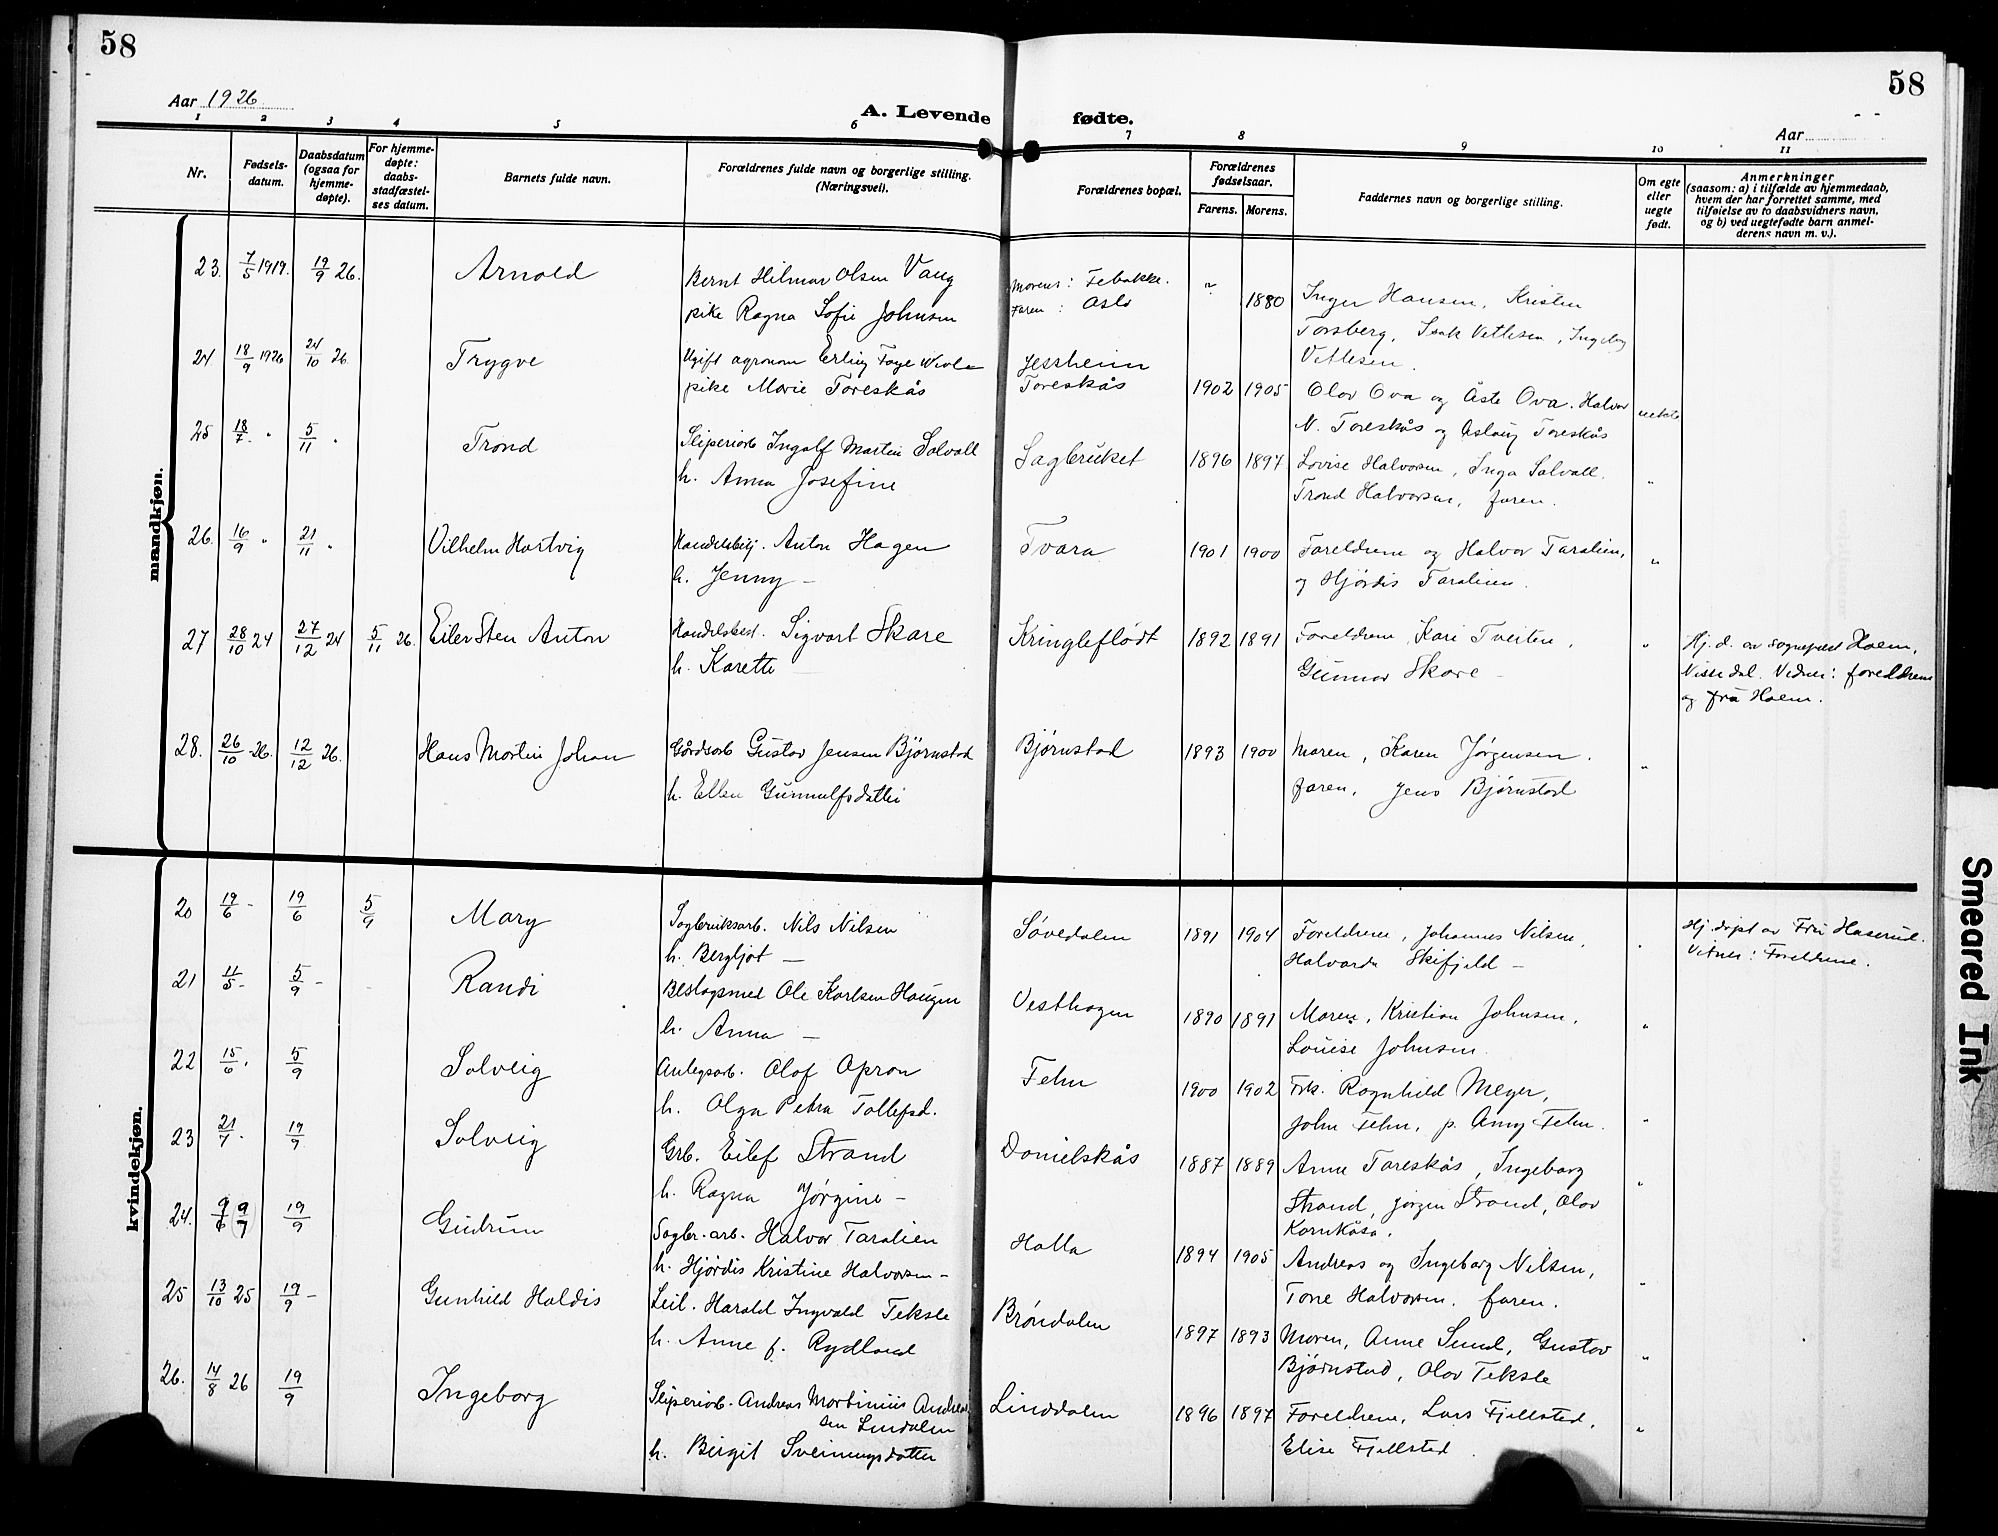 58
58
Aar 1926
A. Levende fødte.
Aar
1 2 3 4 5 6 7 8 9 10 11
Nr.
Fødsels-
datum.
Daabsdatum
(ogsaa for
hjemme-
døpte).
For hjemme-
døpte:
daabs-
stadfæstel-
ses datum.
Barnets fulde navn.
Forældrenes fulde navn og borgerlige stilling.
(Næringsvei).
Forældrenes bopæl.
Forældrenes
fødselsaar.
Farens. Morens.
Faddernes navn og borgerlige stilling.
Om egte
eller
uegte
født.
Anmerkninger
(saasom: a) i tilfælde av hjemmedaab,
hvem der har forrettet samme, med
tilføielse av to daabsvidners navn,
og b) ved uegtefødte barn anmel-
derens navn m. v.).
mandkjøn.
23. 7/5 1919. 19/9 26. Arnold
Bernt Hilmar Olsen Vaag
pike Ragna Sofie Johnsen
Morens: Febakke.
Faren: Oslo
" 1880
Inger Hansen, Kristen
Torsberg, Isak Vetlesen, Ingeborg
Vetlesen.
24. 18/9 1926 24/10 26. Trygve
Ugift agronom Erling Faye
pike Marie Toreskås
Jessheim
Toreskås
1902 1905
Olav Ova og Åste Ova. Halvor
N. Toreskås og Aslaug Toreskås
uekte
25 18/7. " 5/11 " Trond
Sliperiarb Ingolf Martin Solvoll
h. Anna Josefine
Sagbruket
1896 1897
Lovise Halvorsen, Inga Solvoll.
Trond Halvorsen, faren.
"
26. 16/9 " 21/11 " Vilhelm Hartvig
Handelsbetj. Anton Hagen
h. Jenny —
Tvara
1901 1900
Foreldrene og Halvor Taralien,
og Hjørdis Taralien.
"
27 28/10 24 27/12 24 5/11 26. Eiler Sten Anton
Handelsbest. Sigvart Skare
h. Karette —
Kringleflødt
1892 1891
Foreldrene, Kari Tveiten,
Gunnar Skare —
"
Hj. d. av sogneprest Hoem,
Nissedal. Vidner: foreldrene
og fru Hoem.
28. 26/10 -26. 12/12 26. Hans Martin Johan
Gårdsarb Gustav Jensen Bjørnstad
h. Ellen Gunnulfsdatter
Bjørnstad
1893 1900
Moren, Karen Jørgensen.
faren, Jens Bjørnstad
"
kvindekjøn.
20 19/6 - 19/6 5/9 Mary
Sagbruksarb. Nils Nilsen
h. Bergljot —
Søvedalen
1891 1904
Foreldrene, Johannes Nilsen,
Halvarda Skifjeld —
"
Hj. døpt av Fru Haserud.
Vitner: Foreldrene.
21 11/5 - 5/9 - Randi
Beslagsmed Ole Karlsen Haugen
h. Anna —
Vesthagen
1890 1891
Moren, Kristian Johnsen,
Louise Johnsen.
"
22 15/6 " 5/9 Solveig
Anlegsarb. Olof Apron
h. Olga Petra Tollefsd.
Fehn
1900 1902
Frk. Ragnhild Meyer,
John Fehn, p. Amy Fehn.
"
23 21/7 - 19/9 Solveig
Grb. Eilef Strand
h. Ragna Jørgine —
Danielskås
1887 1889
Anne Toreskås, Ingeborg
Strand, Jørgen Strand, Olav
Kornkåsa.
"
24. 9/6 (9/7) 19/9 Gudrun
Sagbr. arb. Halvor Taralien
h. Hjørdis Kristine Halvorsen —
Holla
1894 1905
Andreas og Ingeborg Nilsen,
Tone Halvorsen, faren.
"
25 13/10 25 19/9 - Gunhild Haldis
Leil. Harald Ingvald Teksle
h. Anne f. Rydland
Brøndalen
1897 1893
Moren, Anne Sund, Gustav
Bjørnstad, Olav Teksle
"
26. 14/8 26 19/9 Ingeborg
Sliperiarb. Andreas Martinius Andrea-
sen Lindalen
h. Birgit Sveinungsdatter
Linddalen
1896 1897
Foreldrene, Lars Fjellstad,
Elise Fjellstad.
"
Smeared Ink